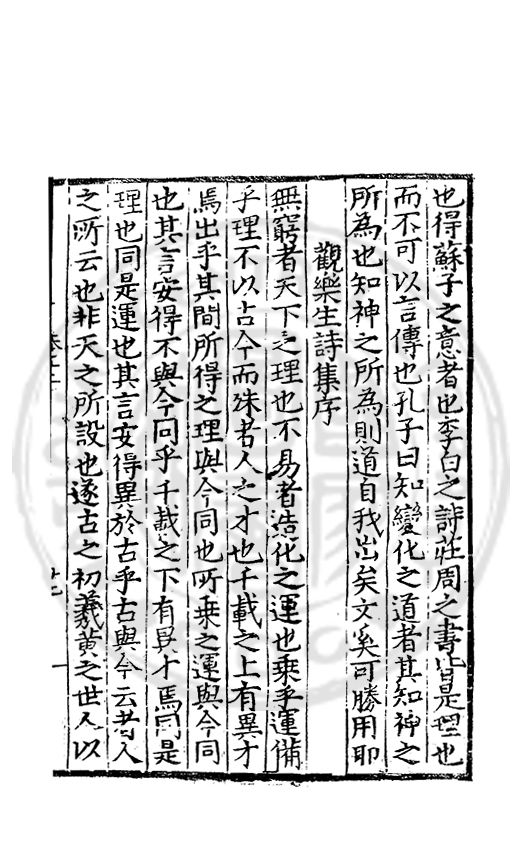 也得蘇子之意者也李白之詩莊周之書皆是理也
而不可以言傳也孔子曰知變化之道者其知神之
所為也知神之所為則道自我出矣文奚可勝用耶
觀樂生詩集序
無窮者天下之理也不易者造化之運也乘乎運備
乎理不以古今而殊者人之才也千載之上有異才
焉出乎其間所得之理與今同也所乘之運與今同
也其言安得不與今同乎千載之下有異才焉同是
理也同是運也其言安得異於古乎古與今云者人
之所云也非天之所設也遂古之初羲黃之世人以
卷十二